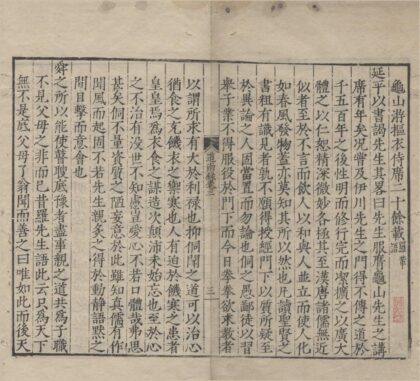 龜山游摳衣侍席二十餘載
延平以書謁先生其畧曰先生服膺龜山先生之講
席有年矣況嘗及伊川先生之門得不傳之道於
千五百年之後性明而修行完而潔擴之以廣大
體之以仁恕精深微妙各極其至漢唐諸儒無近
似者至於不言而飲人以和與人並立而使人化
如春風發物蓋亦莫知其所以然也凡讀聖賢之
書粗有識見者孰不願得授經門下以質所疑至
於異論之人固當置而勿論也侗之愚鄙徒以習
舉子業不得服役於門下而今日拳拳欲求教者
三
以謂所求有大於利祿也抑侗聞之道可以治心
猶食之充饑衣之禦寒也人有迫於饑寒之患者
皇皇焉為衣食之謀造次顛沛未始忘也至於心
之不治有沒世不知慮豈愛心不若口體哉弗思
甚矣侗不量資質之陋妄意於此雖知真儒有作
聞風而起固不若先生親炙之得於動靜語默之
間目擊而意會也
舜之所以能使瞽瞍底豫者盡事親之道共為子職
不見父母之非而已昔羅先生語此云只為天下
無不是底父母了翁聞而善之曰唯如此而後天